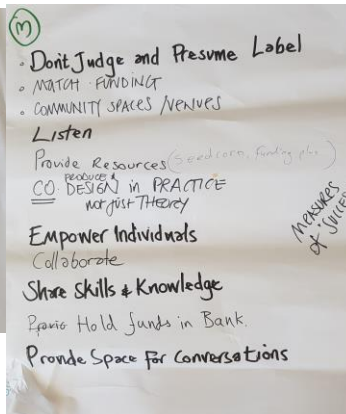 M
• Don't Judge and Presume Label
• MATCH FUNDING
• COMMUNITY SPACES / VENUES
Listen
Provide Resources (Seedcorn, funding plus)
PRODUCE &
CO. DESIGN in PRACTICE
not just THEORY
MEASURES
of SUCCESS
Empower Individuals
Collaborate
Share Skills & Knowledge
Hold funds in Bank.
Provide Space for Conversations